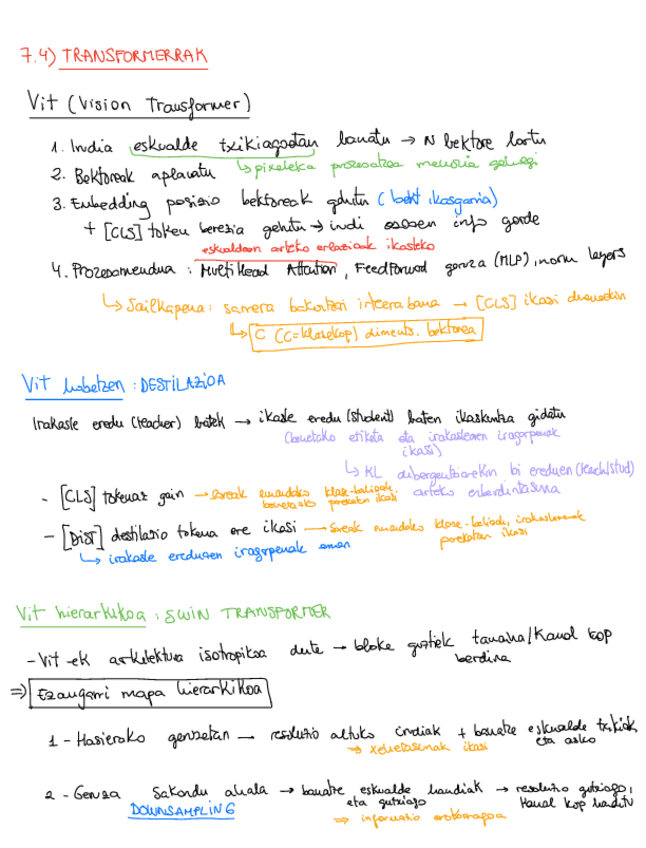 7.4) TRANSFORMERRAK
Vit (Vision Transformer)
1. Irudia eskualde txikiagoetan banatu → N bektore lortu
↳ pixeleka prozesatzea memoria gehiegi
2. Bektoreak aplanatu
3. Embedding posizio bektoreak gehitu (bekt ikasgarria)
+ [CLS] token berezia gehitu → irudi osoaren info gorde
eskualdeen arteko erlazioak ikasteko
4. Prozesamendua : MultiHead Attention, FeedForward geruza (MLP), norm layers
↳ Sailkapena: sarrera bakoitzari irteera bana → [CLS] ikasi duenarekin
↳ C (C=klase kop) diments. bektorea
Vit hobetzen : DESTILAZIOA
Irakasle eredu (teacher) batek → ikasle eredu (student) baten ikaskuntza gidatu
(benetako etiketa eta irakaslearen iragarpenak
ikasi)
↳ KL dibergentziarekin bi ereduen (teach/stud)
arteko ezberdintasuna
- [CLS] tokenaz gain → Sareak emandako klase-balioak,
benetako poteetan ikasi
- [DIST] destilazio tokena ere ikasi → Sareak emandako klase-balioak, irakaslearenak
ikasi
↳ irakasle ereduaren iragarpenak eman
Vit hierarkikoa : SWIN TRANSFORMER
- Vit-ek arkitektura isotropikoa dute → bloke guztiek tamaina/Kanal kop
berdina
⇒ Ezaugarri mapa hierarkikoa
1 - Hasierako geruzetan → resoluzio altuko irudiak + banatze eskualde txikiak
eta asko
⇒ xehetasunak ikasi
2 - Geruza sakondu ahala → banatze eskualde handiak → resoluzio gutxiago,
eta gutxiago Kanal kop handitu
DOWNSAMPLING
⇒ informazio orokorragoa